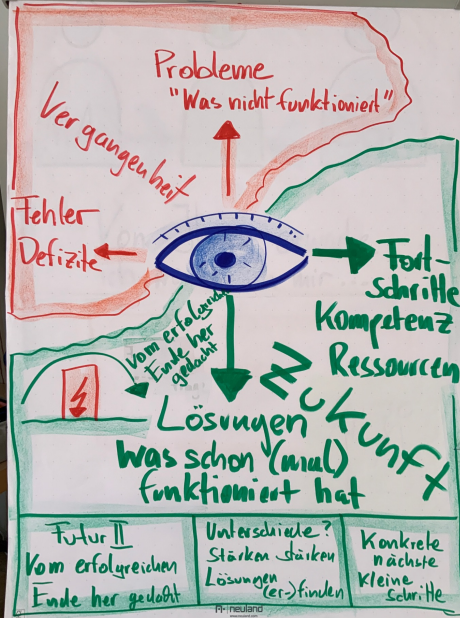 Probleme
"Was nicht funktioniert"
Vergangenheit
Fehler
Defizite
Fort-
schritte
Kompetenz
Ressourcen
Vom erfolgreichen
Ende her
gedacht
Zukunft
Lösungen
Was schon (mal)
funktioniert hat
Futur II
Vom erfolgreichen
Ende her gedacht
Unterschiede?
Stärken stärken
Lösungen
(er-)finden
Konkrete
nächste
kleine
Schritte
neuland
www.neuland.com